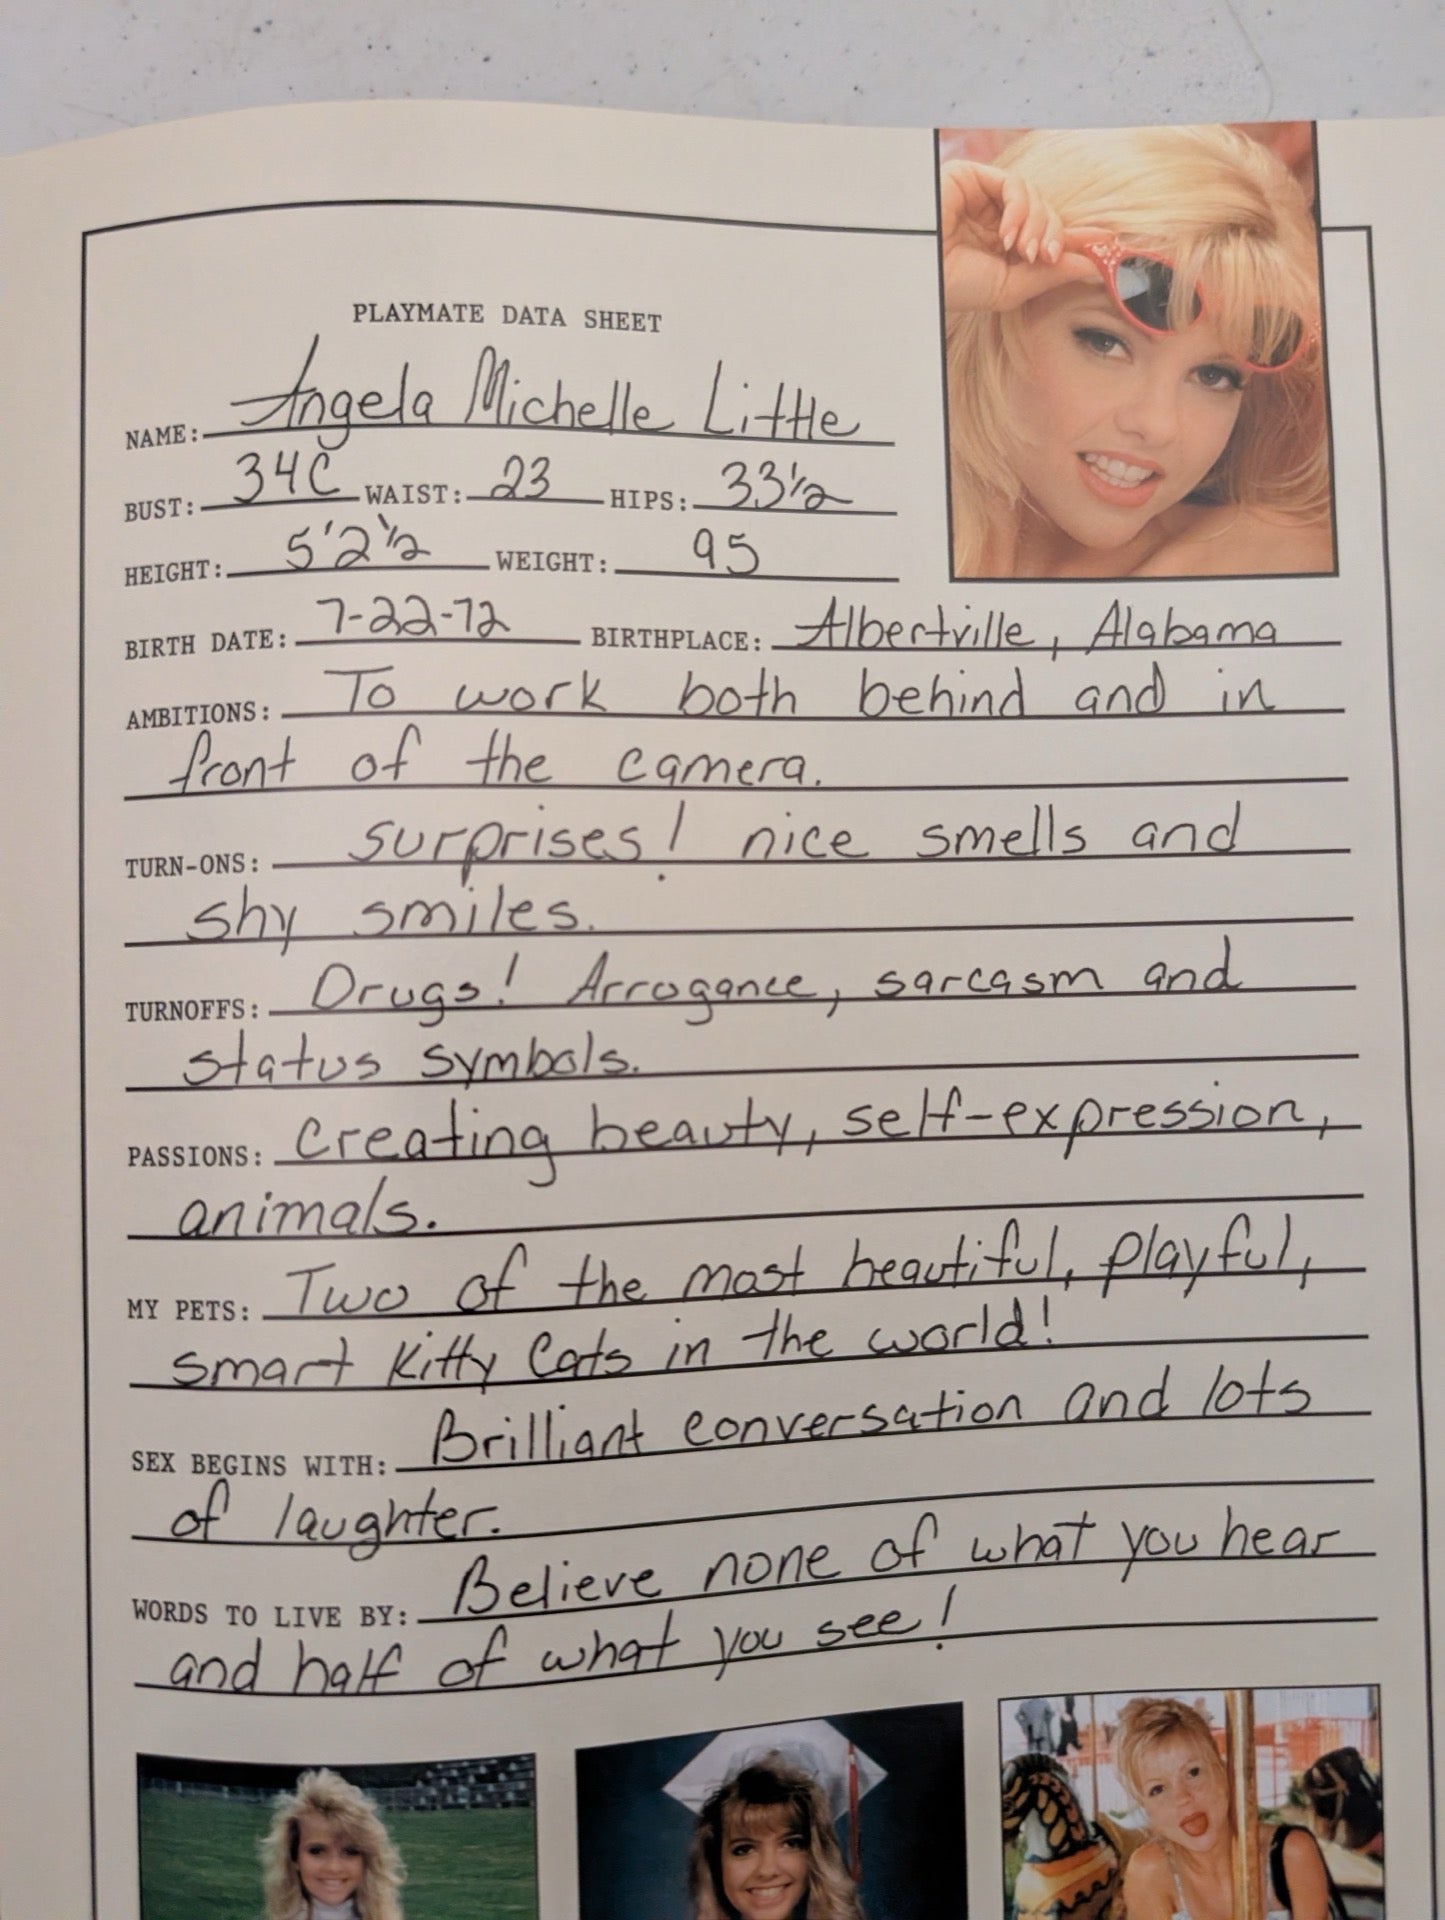 PLAYMATE DATA SHEET
NAME: Angela Michelle Little
BUST: 34C WAIST: 23 HIPS: 33 1/2
HEIGHT: 5'2 1/2 WEIGHT: 95
BIRTH DATE: 7-22-72 BIRTHPLACE: Albertville, Alabama
AMBITIONS: To work both behind and in
front of the camera.
TURN-ONS: surprises! nice smells and
shy smiles.
TURNOFFS: Drugs! Arrogance, sarcasm and
status symbols.
PASSIONS: Creating beauty, self-expression,
animals.
MY PETS: Two of the most beautiful, playful,
smart Kitty Cats in the world!
SEX BEGINS WITH: Brilliant conversation and lots
of laughter.
WORDS TO LIVE BY: Believe none of what you hear
and half of what you see!